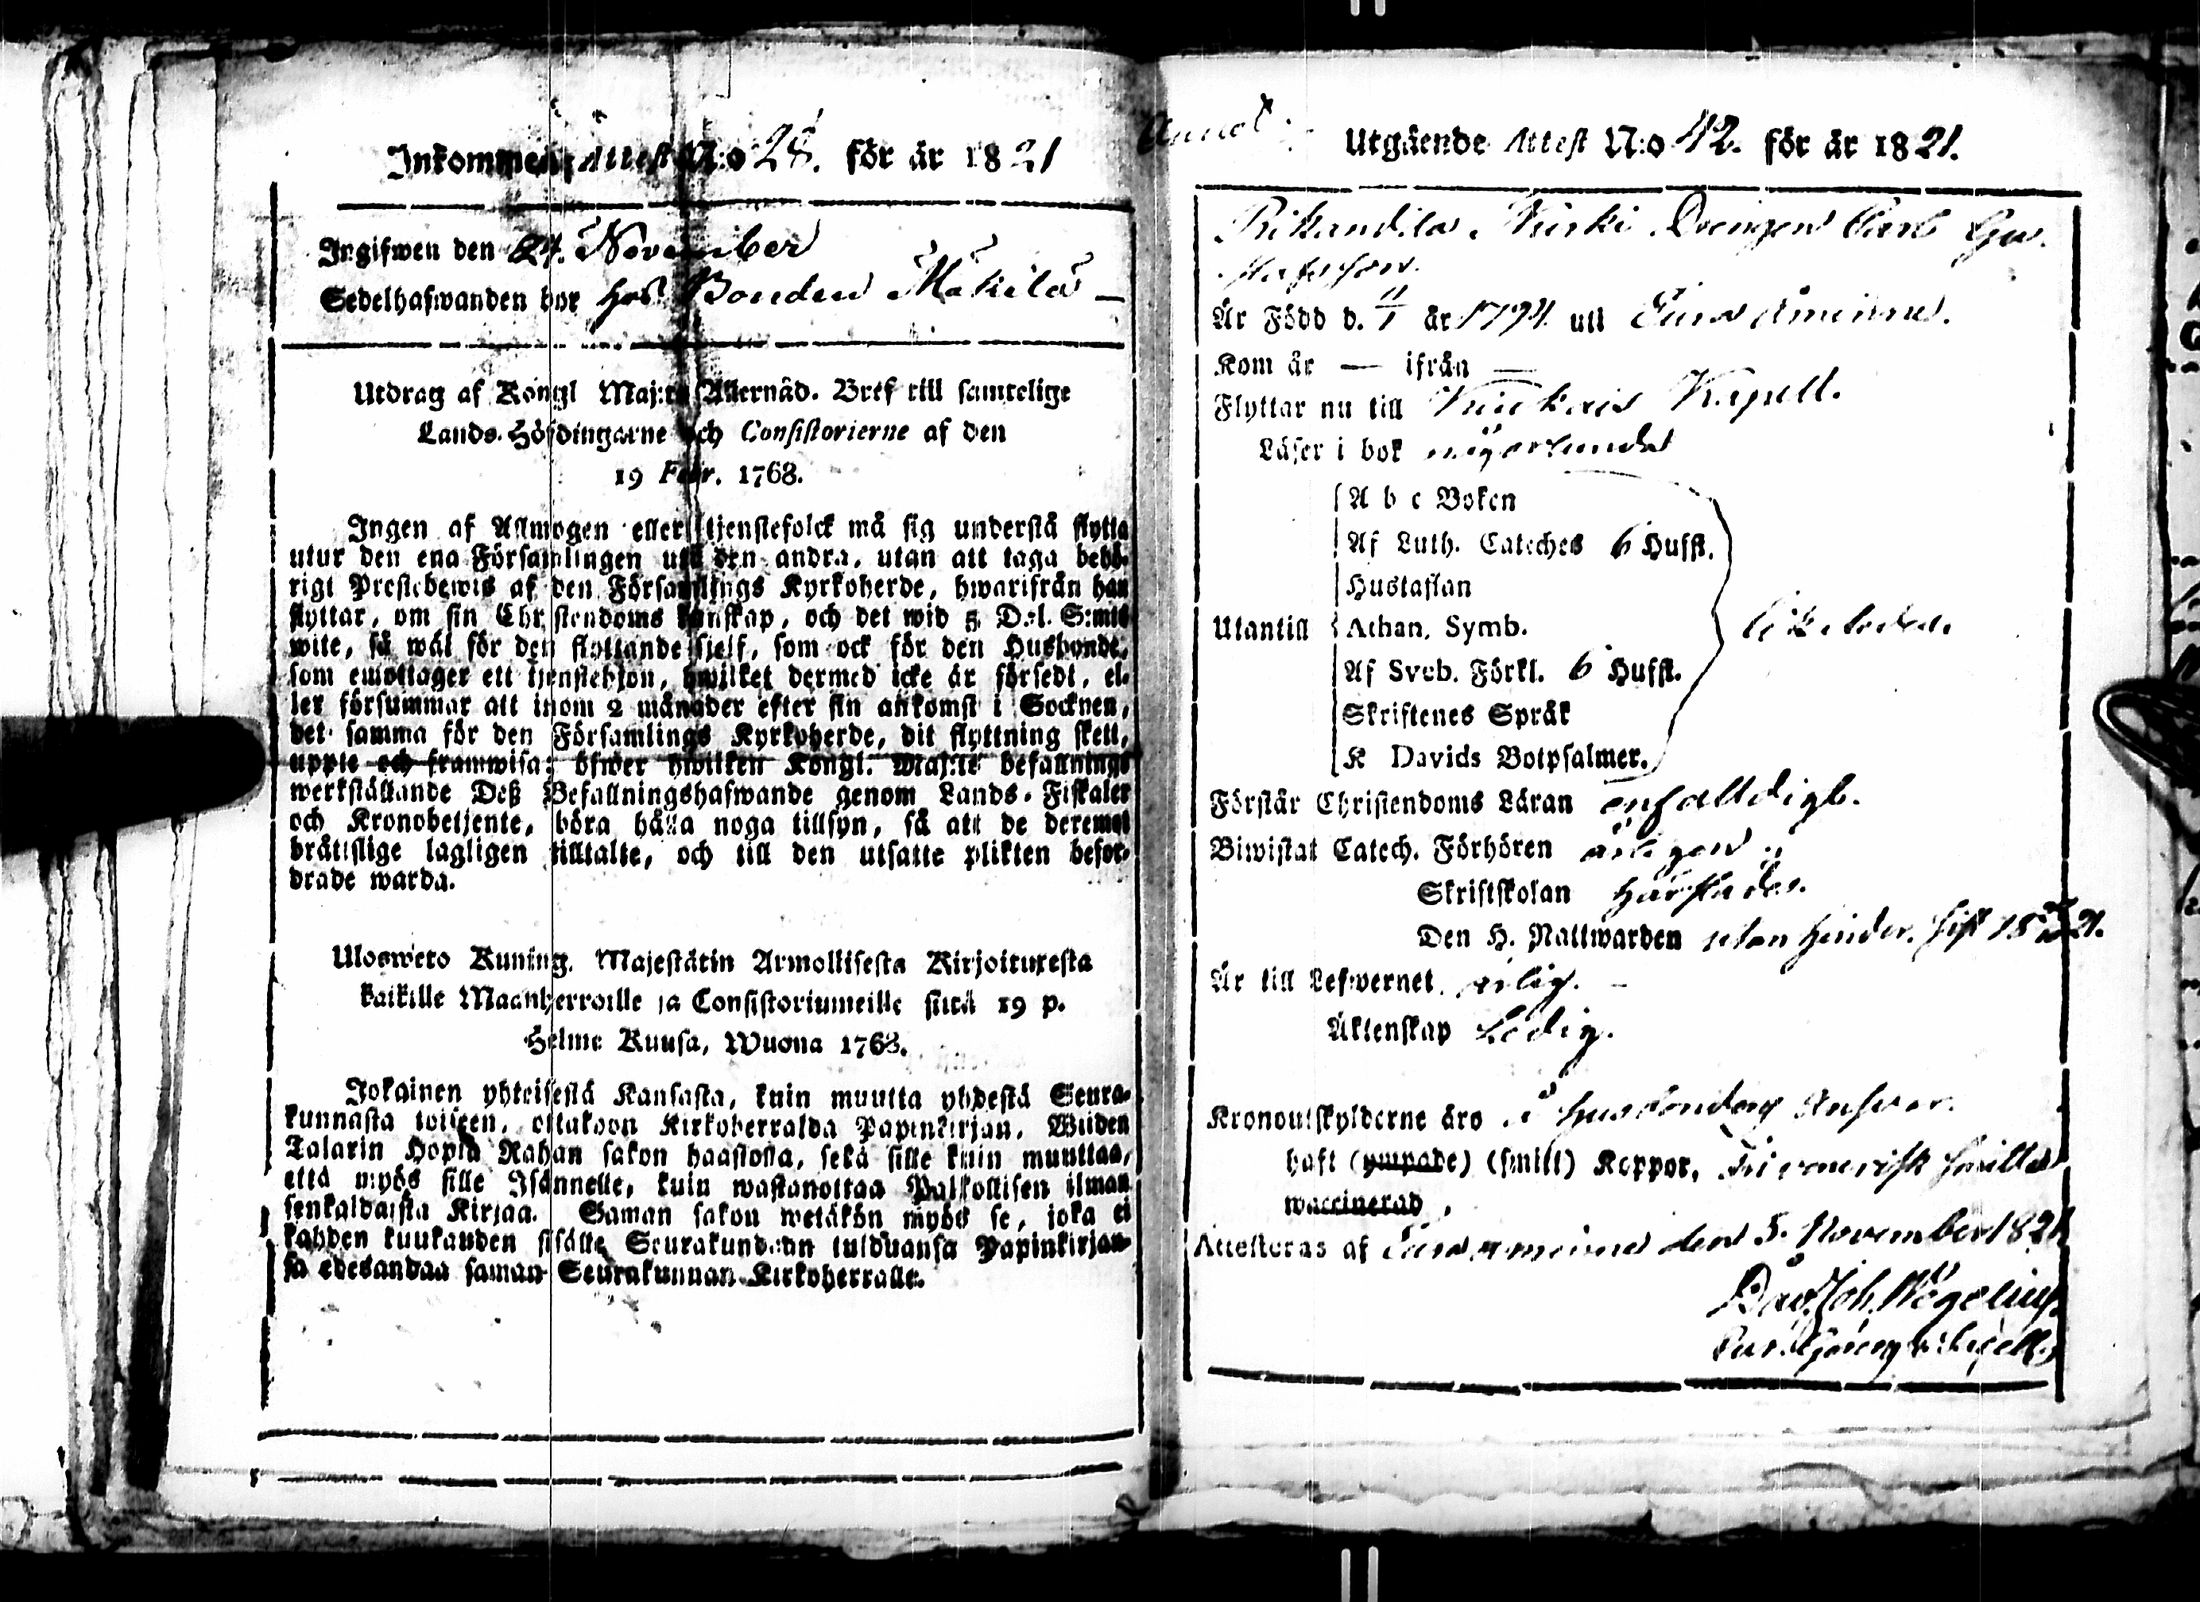 Inkommen Attest N:o 28. för år 1821
Ingifwen den 24. November
Sedelhafwanden bor hos Bonden Mäkilä
Utdrag af Kongl Maj:ts Allernåd. Bref till samtelige
Lands-Höfdingarne och Consistorierne af den
19 Febr. 1768.
Ingen af Allmogen eller tjenstefolck må sig understå flytta
utur den ena Församlingen uti den andra, utan att taga behö-
rigt Prestebewis af den Församlings Kyrkoherde, hwarifrån han
flyttar, om sin Christendoms kunskap, och det wid 5 D:l. S:mts
wite, så wäl för den flyttande sjelf, som ock för den Husbonde,
som emottager ett tjenstehjon, hwilket dermed icke är försedt, el-
ler försummar att inom 2 månader efter sin ankomst i Socknen,
det samma för den Församlings Kyrkoherde, dit flyttning skett,
uppte och framwisa: öfwer hwilken Kongl. Maj:ts befallnings
werkställande Deß Befallningshafwande genom Lands-Fiskaler
och Kronobetjente, böra hålla noga tillsyn, så att de deremot
bråttslige lagligen tilltalte, och till den utsatte plikten befor-
drade warda.
Ulosweto Kuning. Majestätin Armollisesta Kirjoituxesta
kaikille Maanherroille ja Consistoriumeille siitä 19 p.
Helme Kuusa, Wuona 1768.
Jokainen yhteisestä Kansasta, kuin muutta yhdestä Seura-
kunnasta toiseen, ottakoon Kirkoherralda Papinkirjan, Wiiden
Talarin Hopia Rahan sakon haastolla, sekä sille kuin muuttaa,
että myös sille Isännelle, kuin wastanottaa Palkollisen ilman
senkaldaista Kirjaa. Saman sakon wetäkön myös se, joka ei
kahden kuukauden sisälle Seurakundaan tulduansa Papinkirjan-
sa edesandaa saman Seurakunnan Kirkoherralle.
Utgående Attest N:o 42. för år 1821.
Nurki Drengen Carl
Är Född d. 11/1 år 1794 uti Eura åminne.
Kom år — ifrån —
Flyttar nu till Kapell.
Läser i bok någorlunda
A b c Boken
Af Luth. Cateches 6 Hufst.
Hustaflan
Utantill Athan. Symb. likaledes
Af Sveb. Förkl. 6 Hufst.
Skriftenes Språk
K Davids Botpsalmer.
Förstår Christendoms Läran enfaldigt.
Biwistat Catech. Förhören årligen
Skriftskolan
Den H. Nattwarden utan hinder. sist 18 21.
Är till Lefwernet ärlig.
Äktenskap Ledig.
Kronoutskylderne äro i husbondens Answar.
haft (ympade) (smitt) Koppor,
waccinerad
Attesteras af Euraåminne den 5. November 1821
Dav. Joh. Wegelius